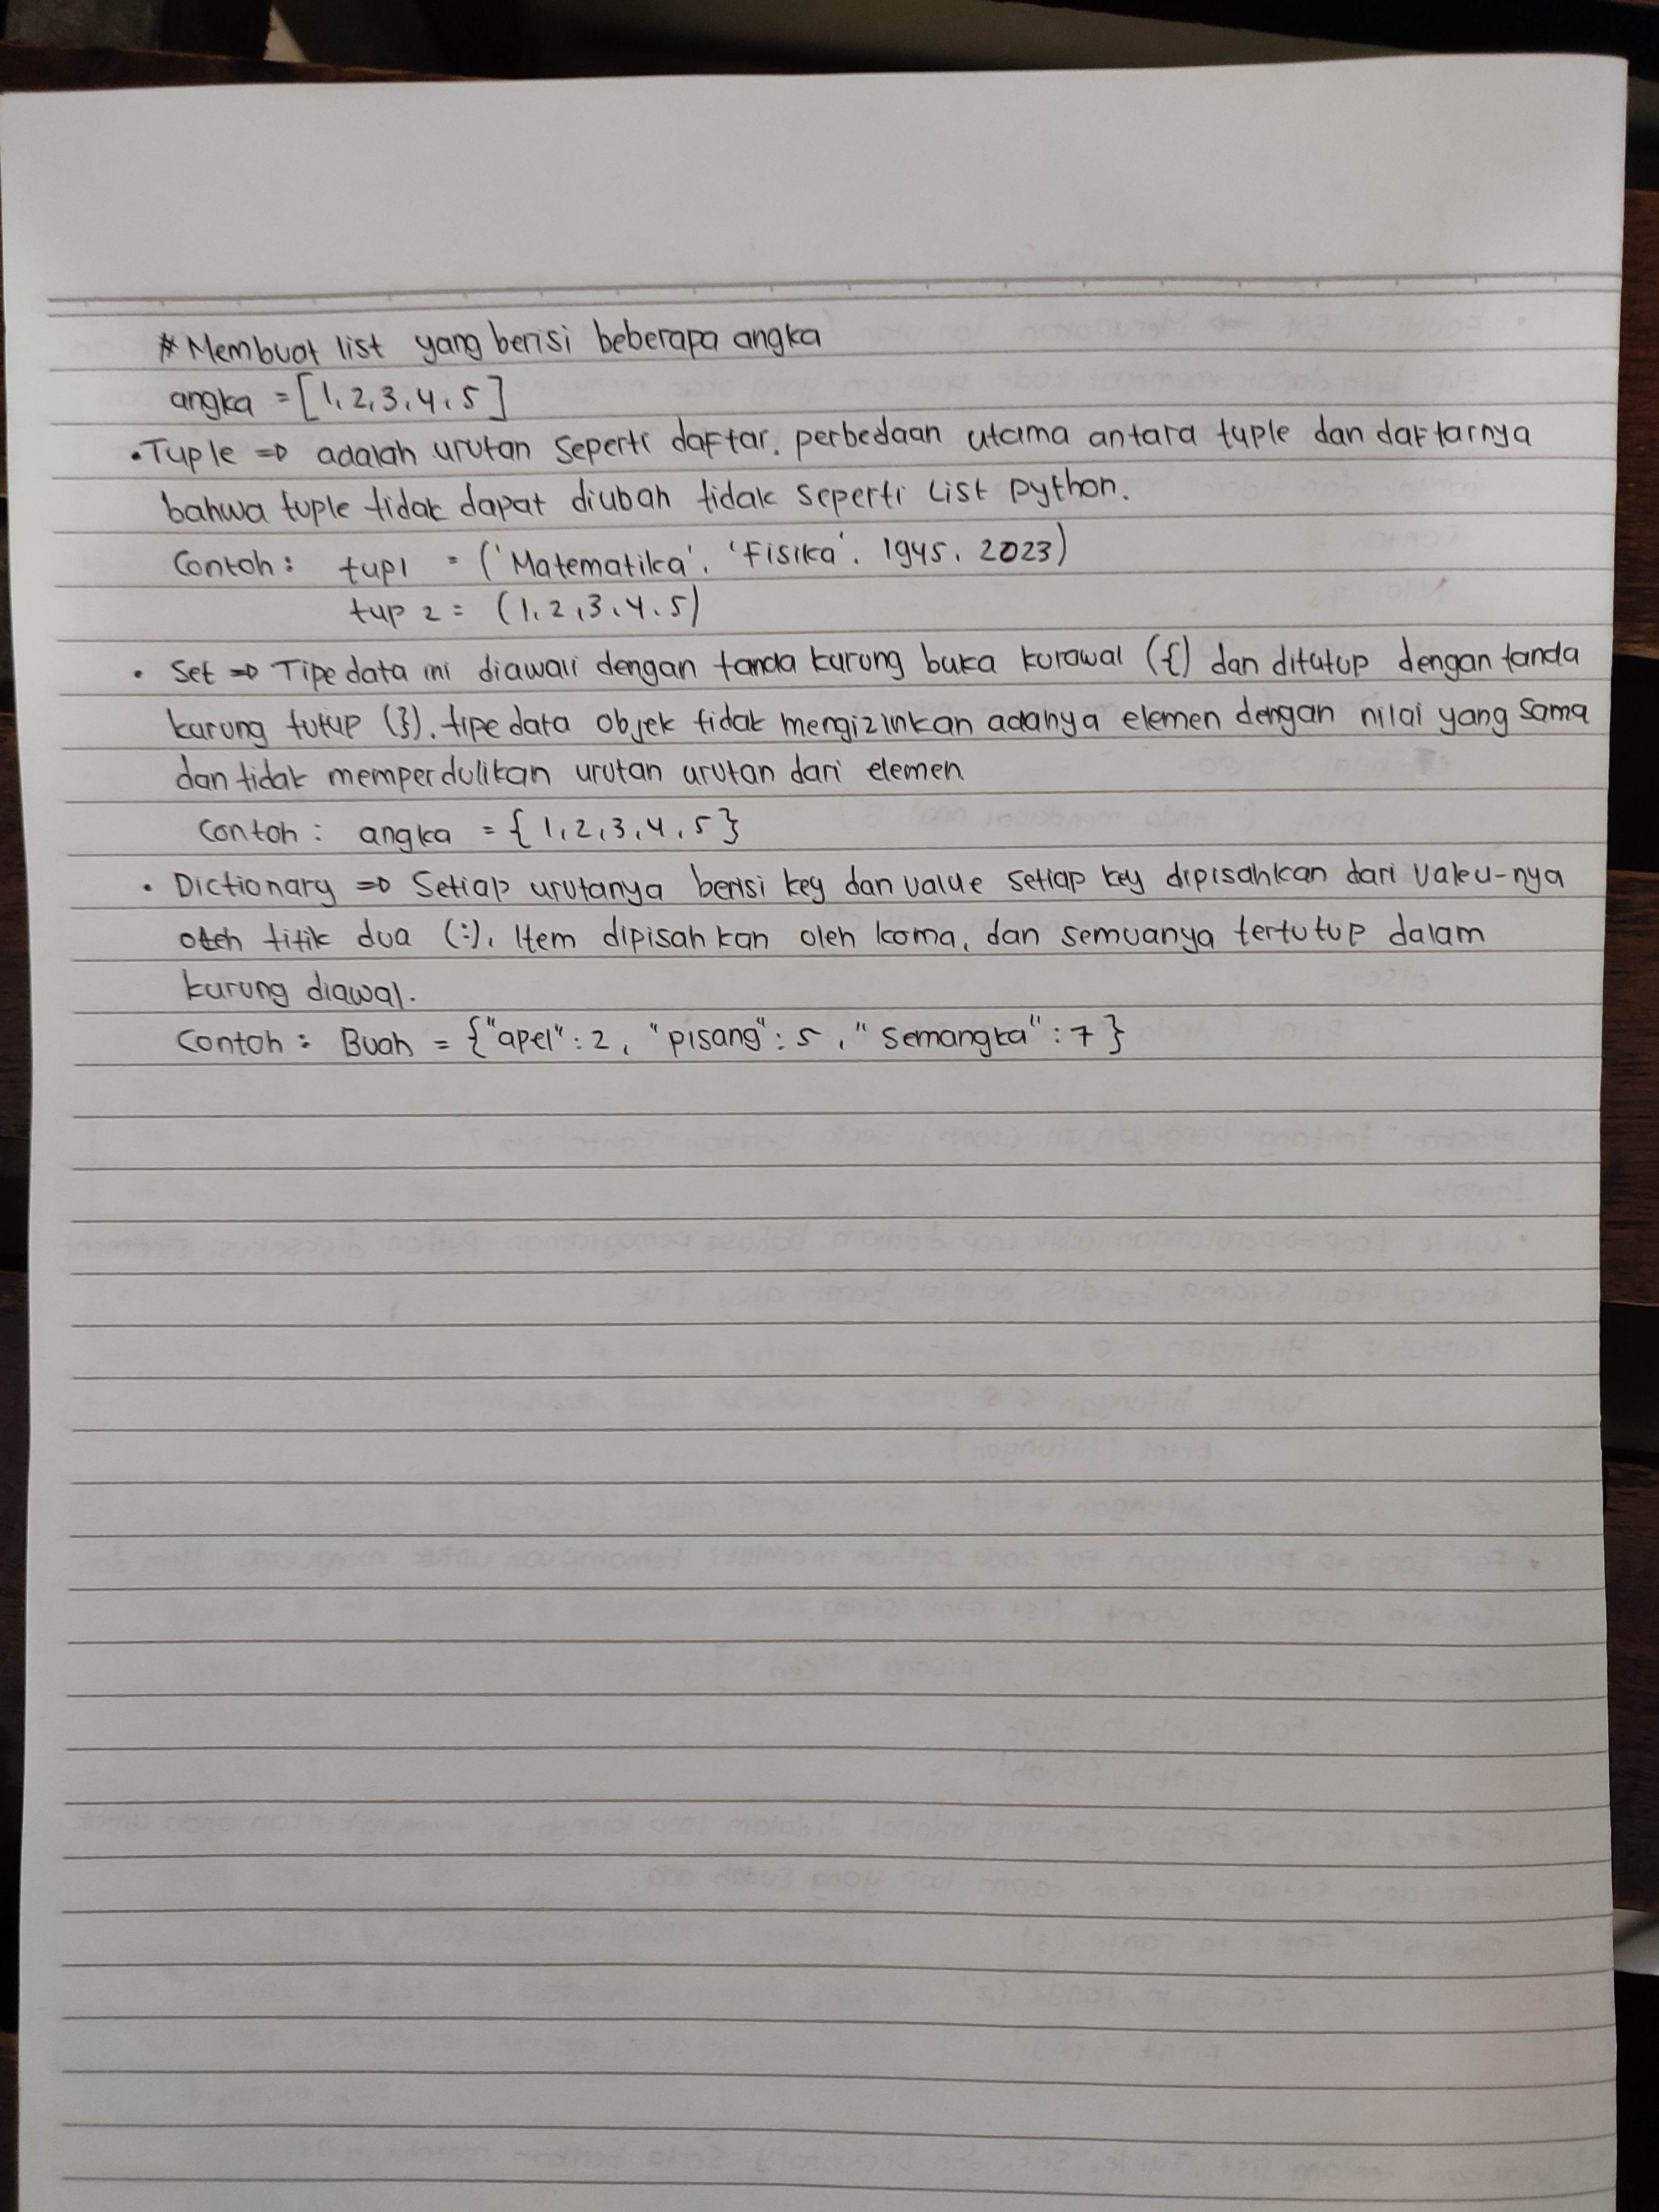 # Membuat list yang berisi beberapa angka
angka = [1, 2, 3, 4, 5]
• Tuple => adalah urutan seperti daftar. perbedaan utama antara tuple dan daftarnya
bahwa tuple tidak dapat diubah tidak seperti List python.
Contoh : tup1 = ('Matematika', 'Fisika', 1945, 2023)
tup 2 = (1, 2, 3, 4, 5)
• Set => Tipe data ini diawali dengan tanda kurung buka kurawal ({) dan ditutup dengan tanda
kurung tutup (}). tipe data objek tidak mengizinkan adanya elemen dengan nilai yang sama
dan tidak memperdulikan urutan urutan dari elemen.
Contoh : angka = { 1, 2, 3, 4, 5 }
• Dictionary => Setiap urutanya berisi key dan value setiap key dipisahkan dari Valeu-nya
oleh titik dua (:), Item dipisahkan oleh koma, dan semuanya tertutup dalam
kurung diawal.
Contoh : Buah = {"apel" : 2, "pisang" : 5, "Semangka" : 7 }